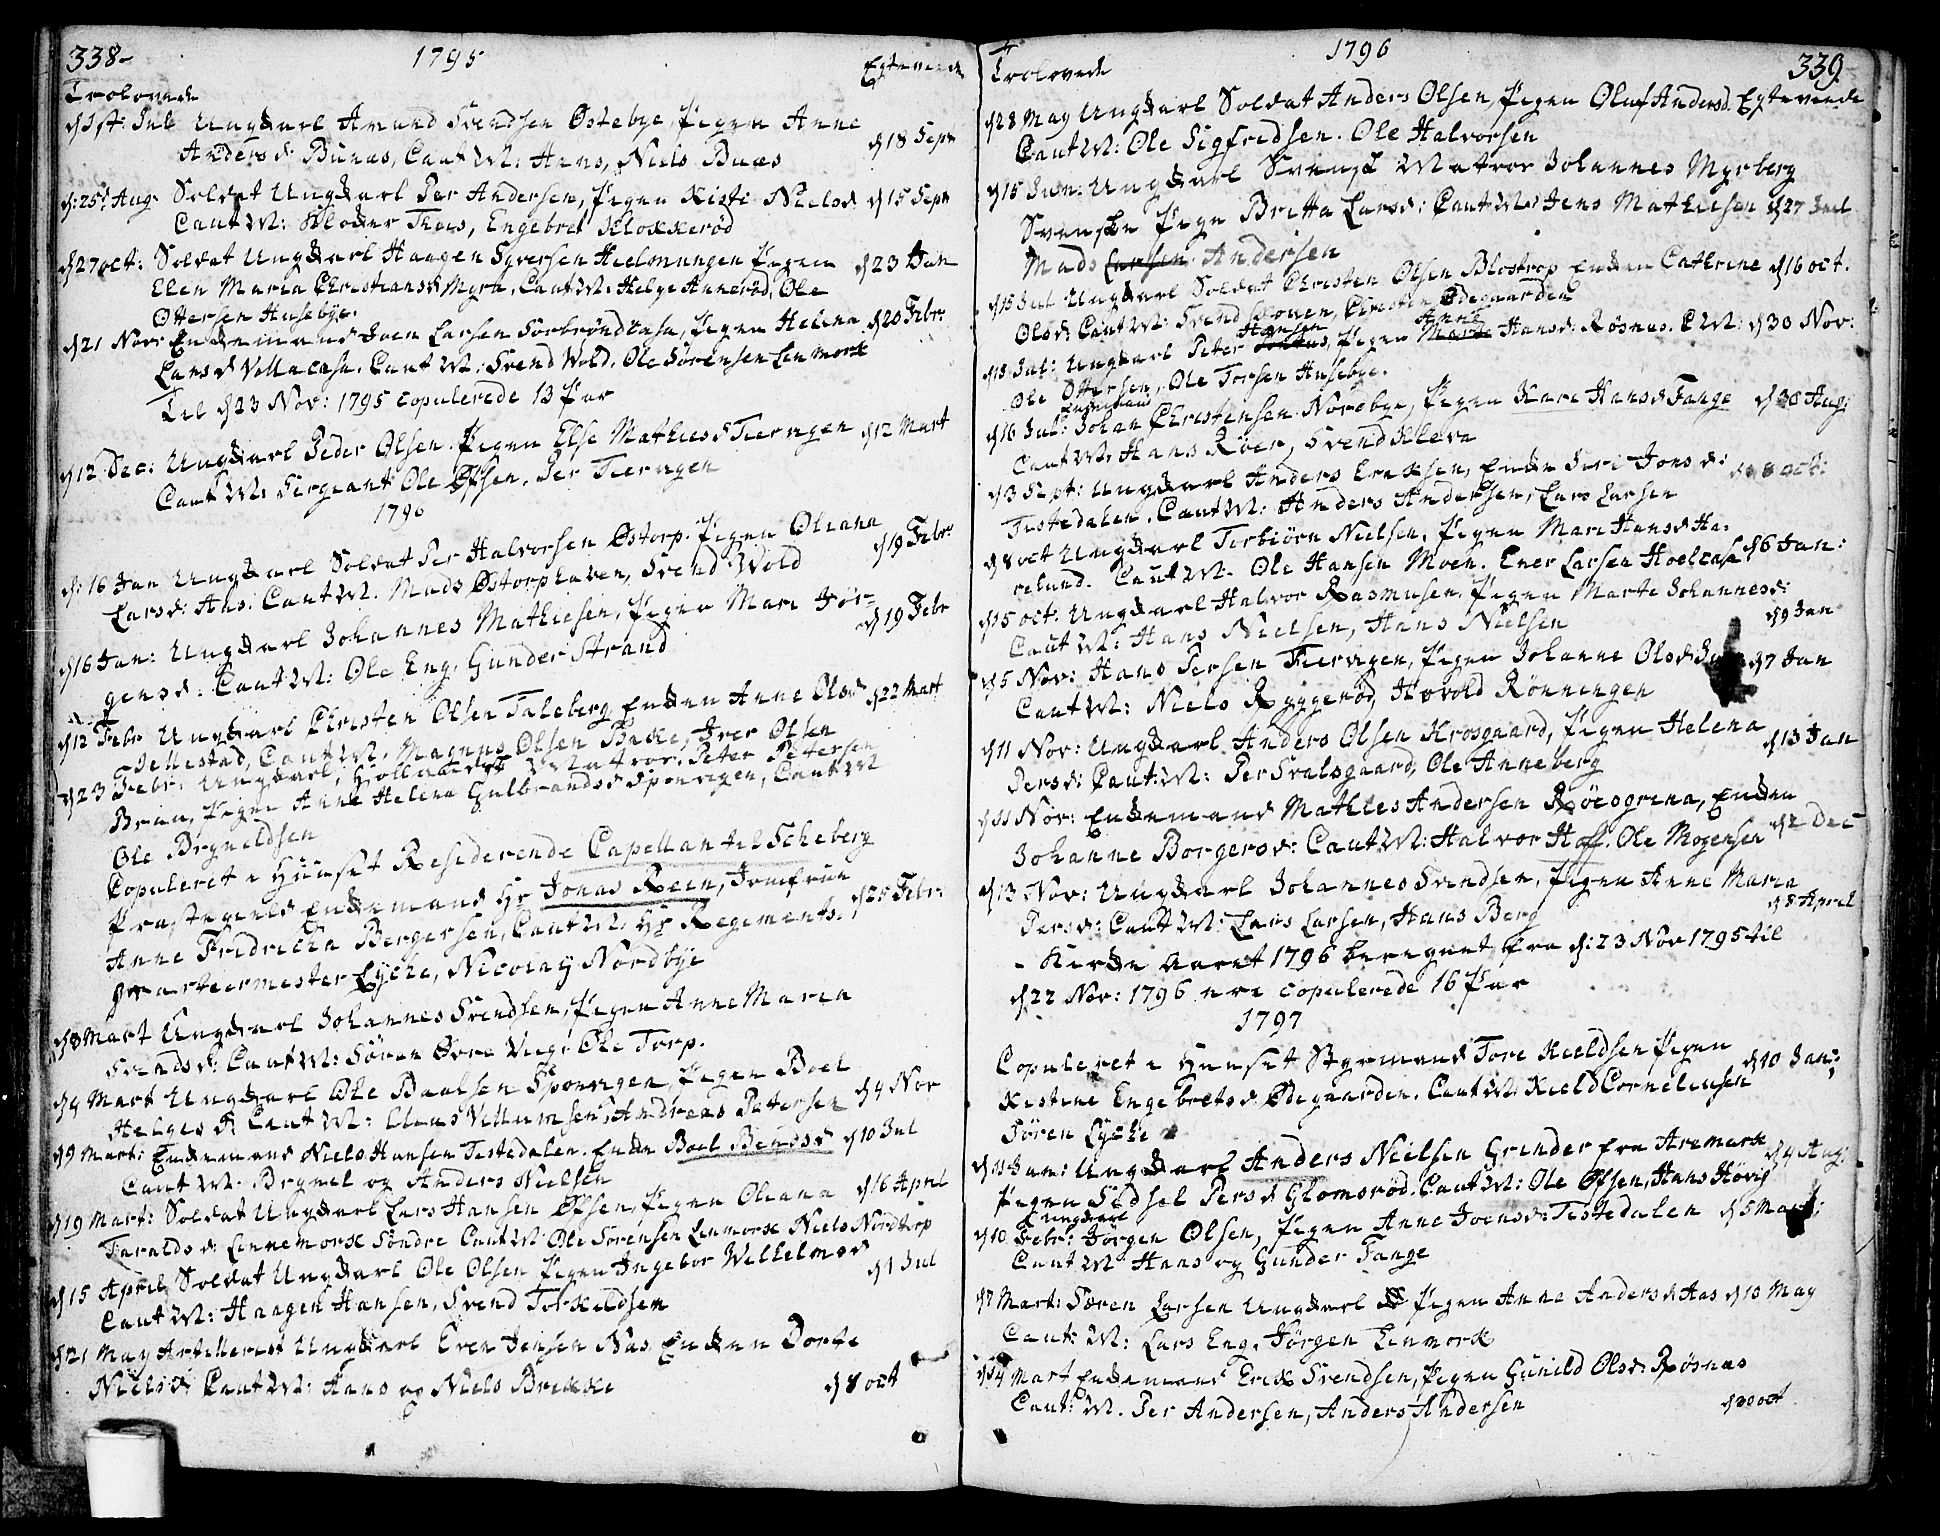 338-
1795
Trolovede
Egteviede
d 1st: Jul Ungkarl Amund Svendsen Østebye, Pigen Anne d 18 Sept
Andersd: Bunæs, Caut M: Hans, Niels Buæs
d: 25: Aug Soldat Ungkarl Per Andersen, Pigen Kisti Nielsd d 15 Sept
Caut M: Kloker Foss, Engebret Klokkerød
d 27 oct: Soldat Ungkarl Haagen Syversen Hielmungen Pigen d 23 Jan
Elen Maria Christiansd Myra, Caut M: Helge Annerød, Ole
Ottersen Husebye.
d 21 Nov: Enkemand Joen Larsen Torbrøndkasa, Pigen Helena d 20 Febr:
Larsd Vollacasa. Caut M: Svend Wold. Ole Sørensen Lenmork
Til d 23 Nov: 1795 copulerede 13 Par
d 12 Dec: Ungkarl Peder Olsen. Pigen Else Mathiesd Tiervigen d 12 Mart
Caut M: Sergeant Ole Øssen, Per Tiervigen
1796
d: 16 Jan Ungkarl Soldat Per Halvorsen Østorp. Pigen Oleana d 19 Febr:
Larsd: Aas. Caut M. Mads Østorphaven, Svend Wold
d 16 Jan: Ungkarl Johannes Mathiesen, Pigen Mari Jør- d 19 Febr
gensd: Caut M: Ole Eng, Gunder Strand
d 12 Febr Ungkarl Christen Olsen Taleberg Enken Anne Olsd d 22 Mart
Jellestad, Caut M. Magnus Olsen Bakke, Iver Olsen
d 23 Febr: Ungkarl, Matros. Peter Petersen
Brun, Pigen Anne Helena Gulbrandsd Sponvigen, Caut M
Ole Brynildsen
Copuleret i Huuset Residerende Capellan til Scheberg
Præstegield Enkemand Hr Jonas Rein, Jomfrue d 25 Febr:
Anne Fridricha Bergersen, Caut M. Hr Regiments-
qvarteermester Lyche, Nicolay Nordbye
d 3 Mart Ungkarl Johannes Svendsen, Pigen Anne Maria
Svendsd: Caut M: Søren Øvre Veeg, Ole Torp.
d 4 Mart Ungkarl Ole Paalsen Sponvigen, Pigen Boel d 4 Nov
Helgesd: Caut M: Claus Vellumsen, Andreas Petersen
d 9 Mart: Enkemand Niels Hansen Tistedalen. Enken Boel Bendsd d 10 Jul
Caut M. Brynel og Anders Nielsen
d 19 Mart: Soldat Ungkarl Lars Hansen Øssen, Pigen Oleana d 16 April
Taraldsd: Lennemork Søndre Caut M Ole Sørensen Lenmork Niels Nordtorp
d 15 April Soldat Ungkarl Ole Olsen Pigen Ingebor Wilhelmsd d 1 Jul
Caut M: Haagen Hansen, Svend Torkildsen
d 21 May Artillerist Ungkarl Even Jensen Næs Enken Dorte
Nielsd: Caut M: Hans og Niels Brekke d 8 oct
1796
339
Trolovede
d 28 May Ungkarl Soldat Anders Olsen, Pigen Oluf Andersd. Egteviede
Caut M: Ole Sigfredsen. Ole Halvorsen
d 15 Jun: Ungkarl Svensk Matros Johannes Myrberg
Svenske Pige Britta Larsd: Caut M: Jens Mathiesen d 27 Jul
Mads Larsen Andersen
d 15 Jul Ungkarl Soldat Christen Olsen Blostrop Enken Cathrine d 16 oct.
Olsd: Caut M: Svend Skoven, Christen Ødegaarden
d 15 Jul: Ungkarl Peter Hansen, Pigen Anne Marte Hansd: Røsnæs. C M: d 30 Nov:
Ole Ottersen, Ole Torsen Husebye.
Enkemand
d 16 Jul: Johan Christensen Nordbye, Pigen Kari Hansd Fange d 30 Aug:
Caut M: Hans Røer, Svend Kleva
d 3 Sept: Ungkarl Anders Eriksen, Enken Siri Jonsd: d 8 oct:
Tistedalen. Caut M: Anders Andersen, Lars Larsen
d 8 oct Ungkarl Torbiørn Nielsen, Pigen Mari Hansd Ha-
relund. Caut M. Ole Hansen Moen. Ener Larsen Hoelcasa d 6 Jan:
d 15 oct: Ungkarl Halvor Rasmusen, Pigen Marte Johannesd:
Caut M: Hans Nielsen, Hans Nielsen d 9 Jan
d 5 Nov: Hans Persen Tiervigen, Pigen Johanne Olsd d 7 Jan
Caut M: Niels Ryggerød, Hovold Rønningen
d 11 Nov: Ungkarl Anders Olsen Krosgaard, Pigen Helena d 13 Jan
Persd: Caut M: Per Svalsgaard, Ole Anneberg
d 11 Nov: Enkemand Mathies Andersen Røesgrena, Enken
Johanne Borgersd: Caut M: Halvor Hoff. Ole Mogensen d 2 Dec
d 13 Nov: Ungkarl Johannes Svendsen, Pigen Anne Maria
Persd: Caut M: Lars Larsen, Hans Berg d 8 April
- Kirke Aaret 1796 beregnet fra d: 23 Nov 1795 til
d 22 Nov: 1796 ere copulerede 16 Par
1797
Copuleret i Huuset Styrmand Tore Kieldsen Pigen d 10 Jan:
Kistine Engebretsd Ødegaarden. Caut M Kield Cornelinsen
Søren Lyche
d 11 Jan: Ungkarl Anders Nielsen Grinder fra Aremark d 4 Aug:
Pigen Sidsel Persd Glomsrød. Caut M: Ole Øssen, Hans Høvig
Ungkarl
d 10 Febr: Jørgen Olsen, Pigen Anne Joensd: Tistedalen d 5 Mart:
Caut M Hans og Gunder Fange
d 7 Mart: Søren Larsen Ungkarl Pigen Anne Andersd Aas d 10 May
Caut: M: Lars Eng, Jørgen Lenmork
d 14 Mart Enkemand Erik Svendsen, Pigen Gunild Olsd: Røsnæs
Caut: M. Per Andersen, Anders Andersen d 20 oct